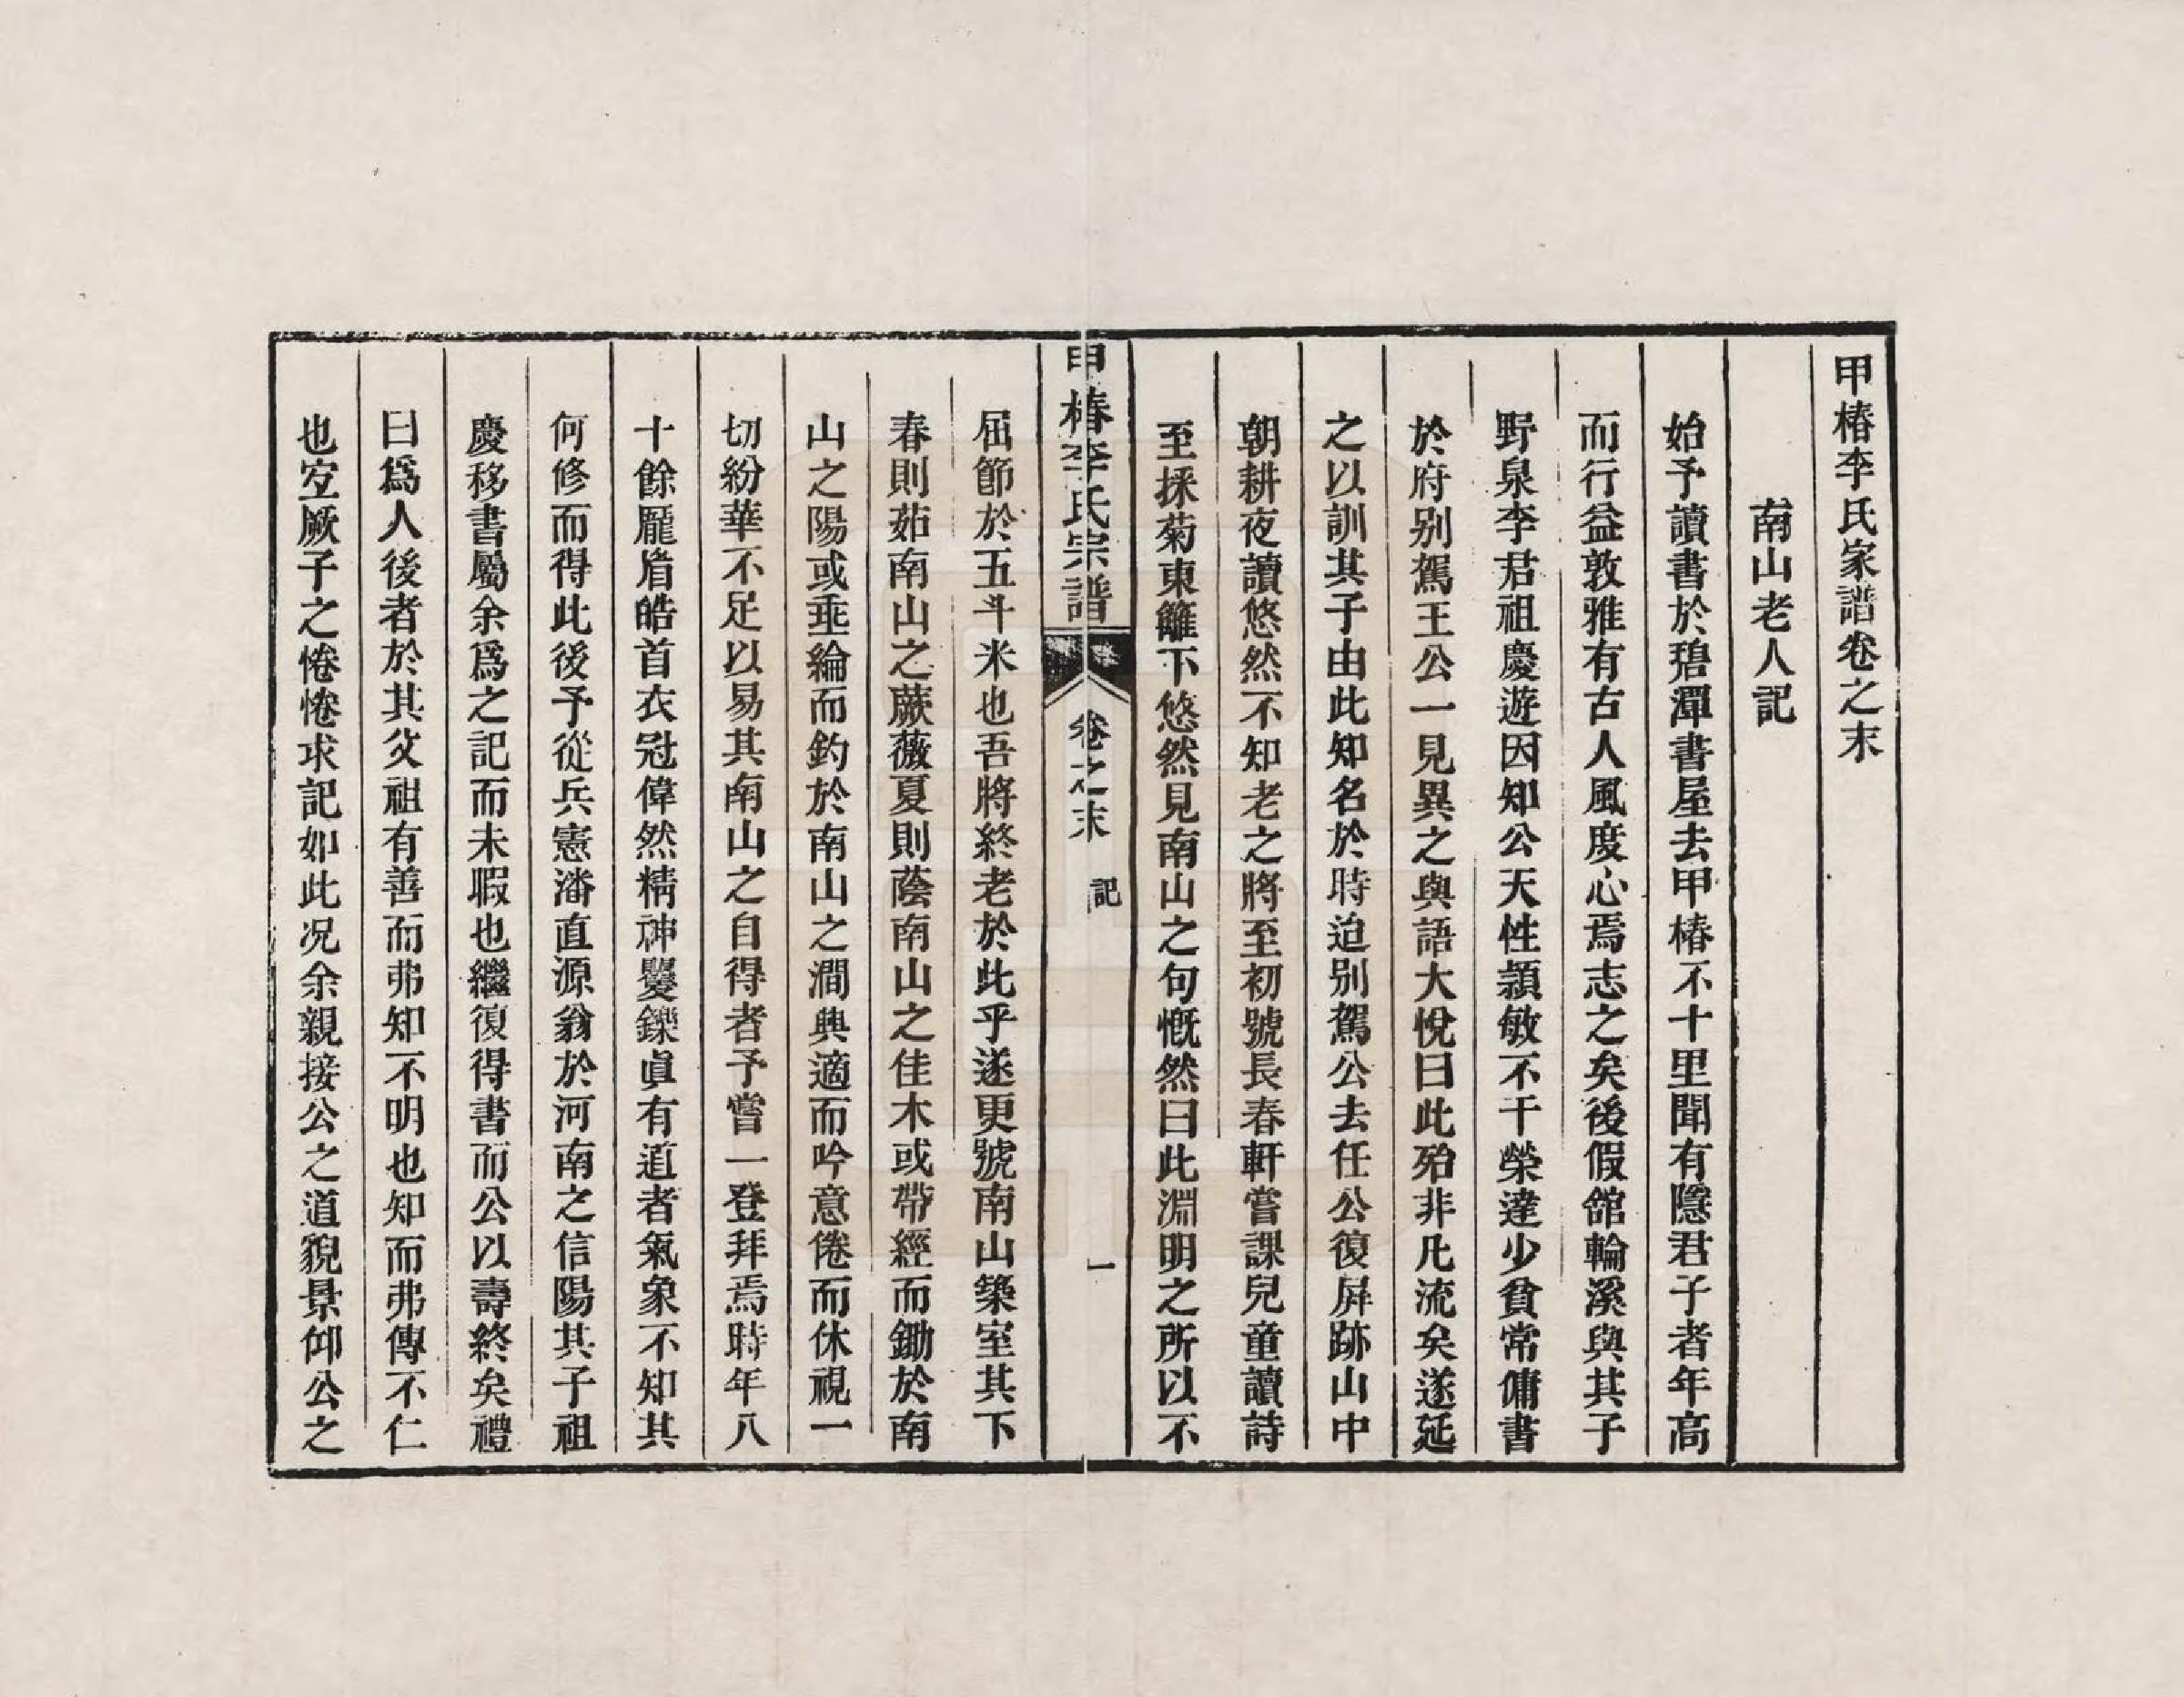 甲椿李氏家譜卷之末
南山老人記
始予讀書於碧潭書屋去甲椿不十里聞有隱君子者年高
而行益敦雅有古人風度心焉志之矣後假舘輪溪與其子
野泉李君祖慶遊因知公天性頴敏不干榮達少貧常傭書
於府别駕王公一見異之與語大悅曰此殆非凡流矣遂延
之以訓其子由此知名於時迫别駕公去任公復屏跡山中
朝耕夜讀悠然不知老之將至初號長春軒嘗課兒童讀詩
至採菊東籬下悠然見南山之句慨然曰此淵明之所以不
甲椿李氏宗譜 卷之末 記 一
屈節於五斗米也吾將終老於此乎遂更號南山築室其下
春則茹南山之蕨薇夏則蔭南山之佳木或帶經而鋤於南
山之陽或垂綸而釣於南山之澗興適而吟意倦而休視一
切紛華不足以易其南山之自得者予嘗一登拜焉時年八
十餘龐眉皓首衣冠偉然精神矍鑠眞有道者氣象不知其
何修而得此後予從兵憲潘直源翁於河南之信陽其子祖
慶移書屬余爲之記而未暇也繼復得書而公以壽終矣禮
曰爲人後者於其父祖有善而弗知不明也知而弗傳不仁
也宐厥子之惓惓求記如此况余親接公之道貌景仰公之